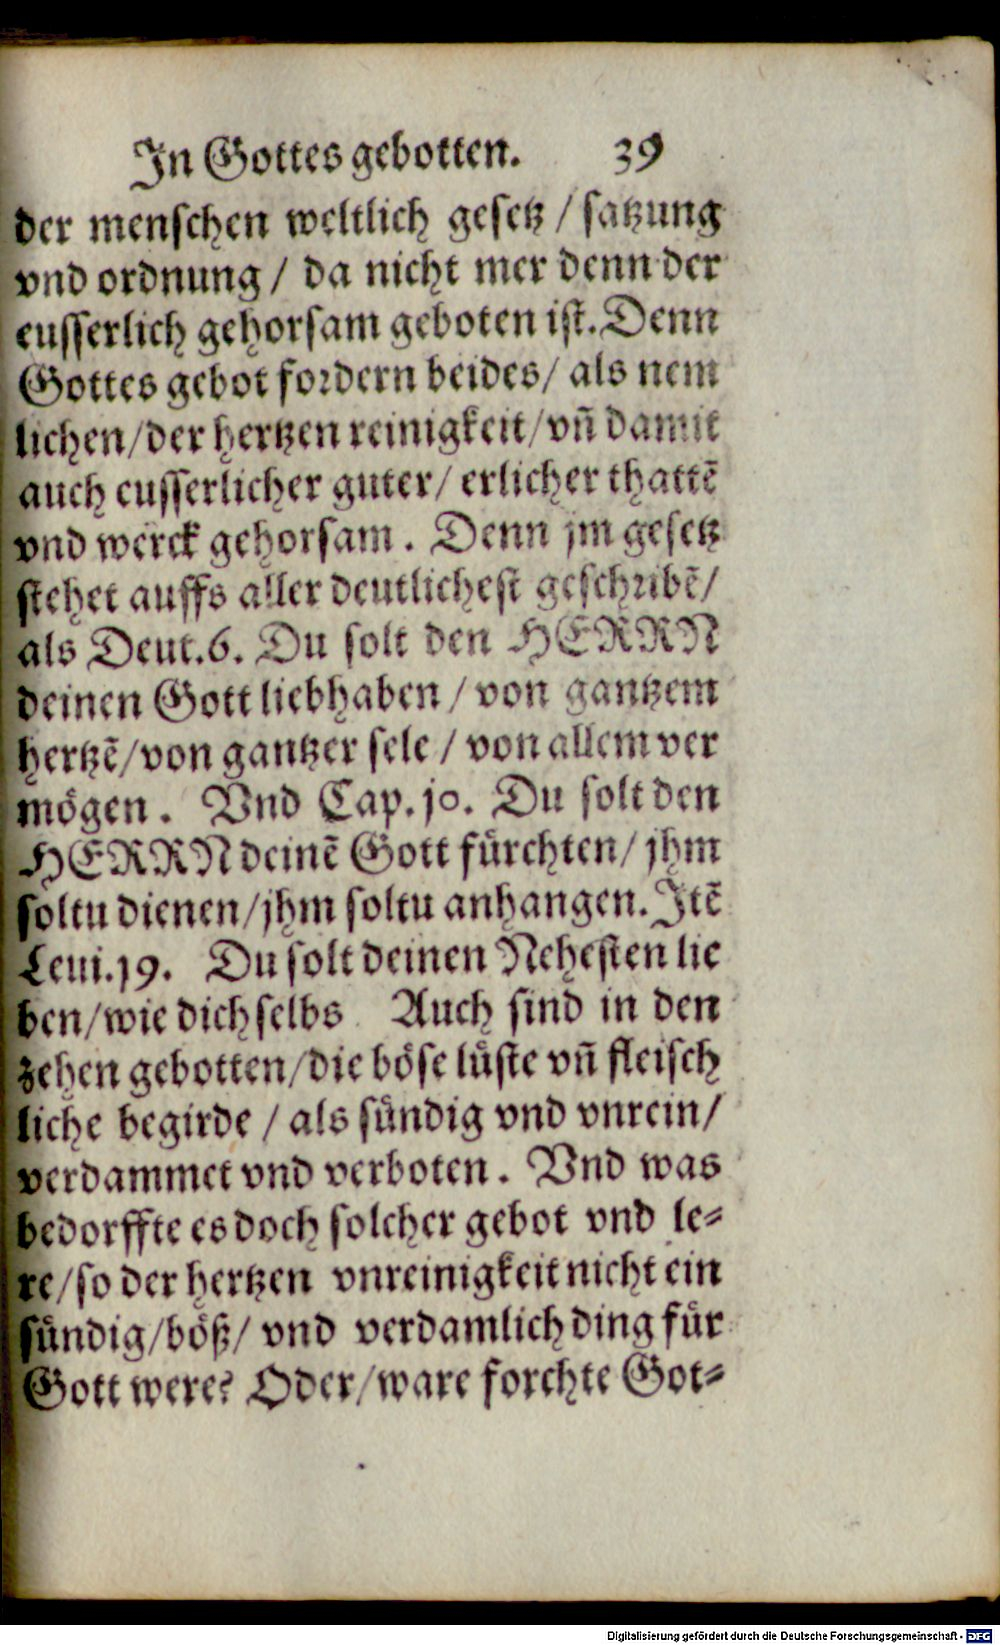 In Gottes gebotten. 39
der menschen weltlich gesetz / satzung
vnd ordnung / da nicht mer denn der
eusserlich gehorsam geboten ist. Denn
Gottes gebot fordern beides / als nem
lichen / der hertzen reinigkeit / vñ damit
auch eusserlicher guter / erlicher thattē
vnd werck gehorsam . Denn jm gesetz
stehet auffs aller deutlichest geschribē /
als Deut. 6. Du solt den HERRN
deinen Gott liebhaben / von gantzem
hertzē / von gantzer sele / von allem ver
mögen . Vnd Cap. jo. Du solt den
HERRN deinē Gott fürchten / jhm
soltu dienen / jhm soltu anhangen. Itē
Leui. j9. Du solt deinen Nehesten lie
ben / wie dich selbs Auch sind in den
zehen gebotten / die böse lüste vñ fleisch
liche begirde / als sündig vnd vnrein /
verdammet vnd verboten . Vnd was
bedorffte es doch solcher gebot vnd le⸗
re / so der hertzen vnreinigkeit nicht ein
sündig / böß / vnd verdamlich ding für
Gott were? Oder / ware forchte Got⸗
Digitalisierung gefördert durch die Deutsche Forschungsgemeinschaft - DFG